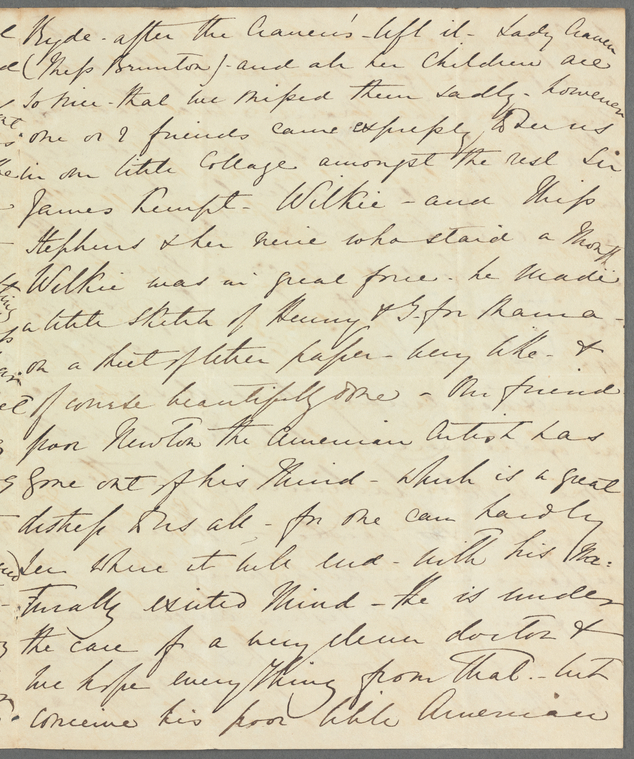 Ryde - after the Craven's - left it - Lady Craven
(Miss Brunton) - and all her Children are
so nice - that we missed them sadly - however
one or 2 friends came expressly to see us
in our little Cottage amongst the rest Sir
James Kempt - Wilkie - and Miss
Stephens & her niece who staid a Month
Wilkie was in great force - he made
a little sketch of Henry & G. for Mama -
on a sheet of letter paper - very like - &
of course beautifully done - Our friend
poor Newton the American Artist has
gone out of his Mind - which is a great
distress to us all - for one can hardly
see where it will end - with his Na:
turally exited Mind - He is under
the care of a very clever doctor &
we hope everything from that - but
conceive his poor little American